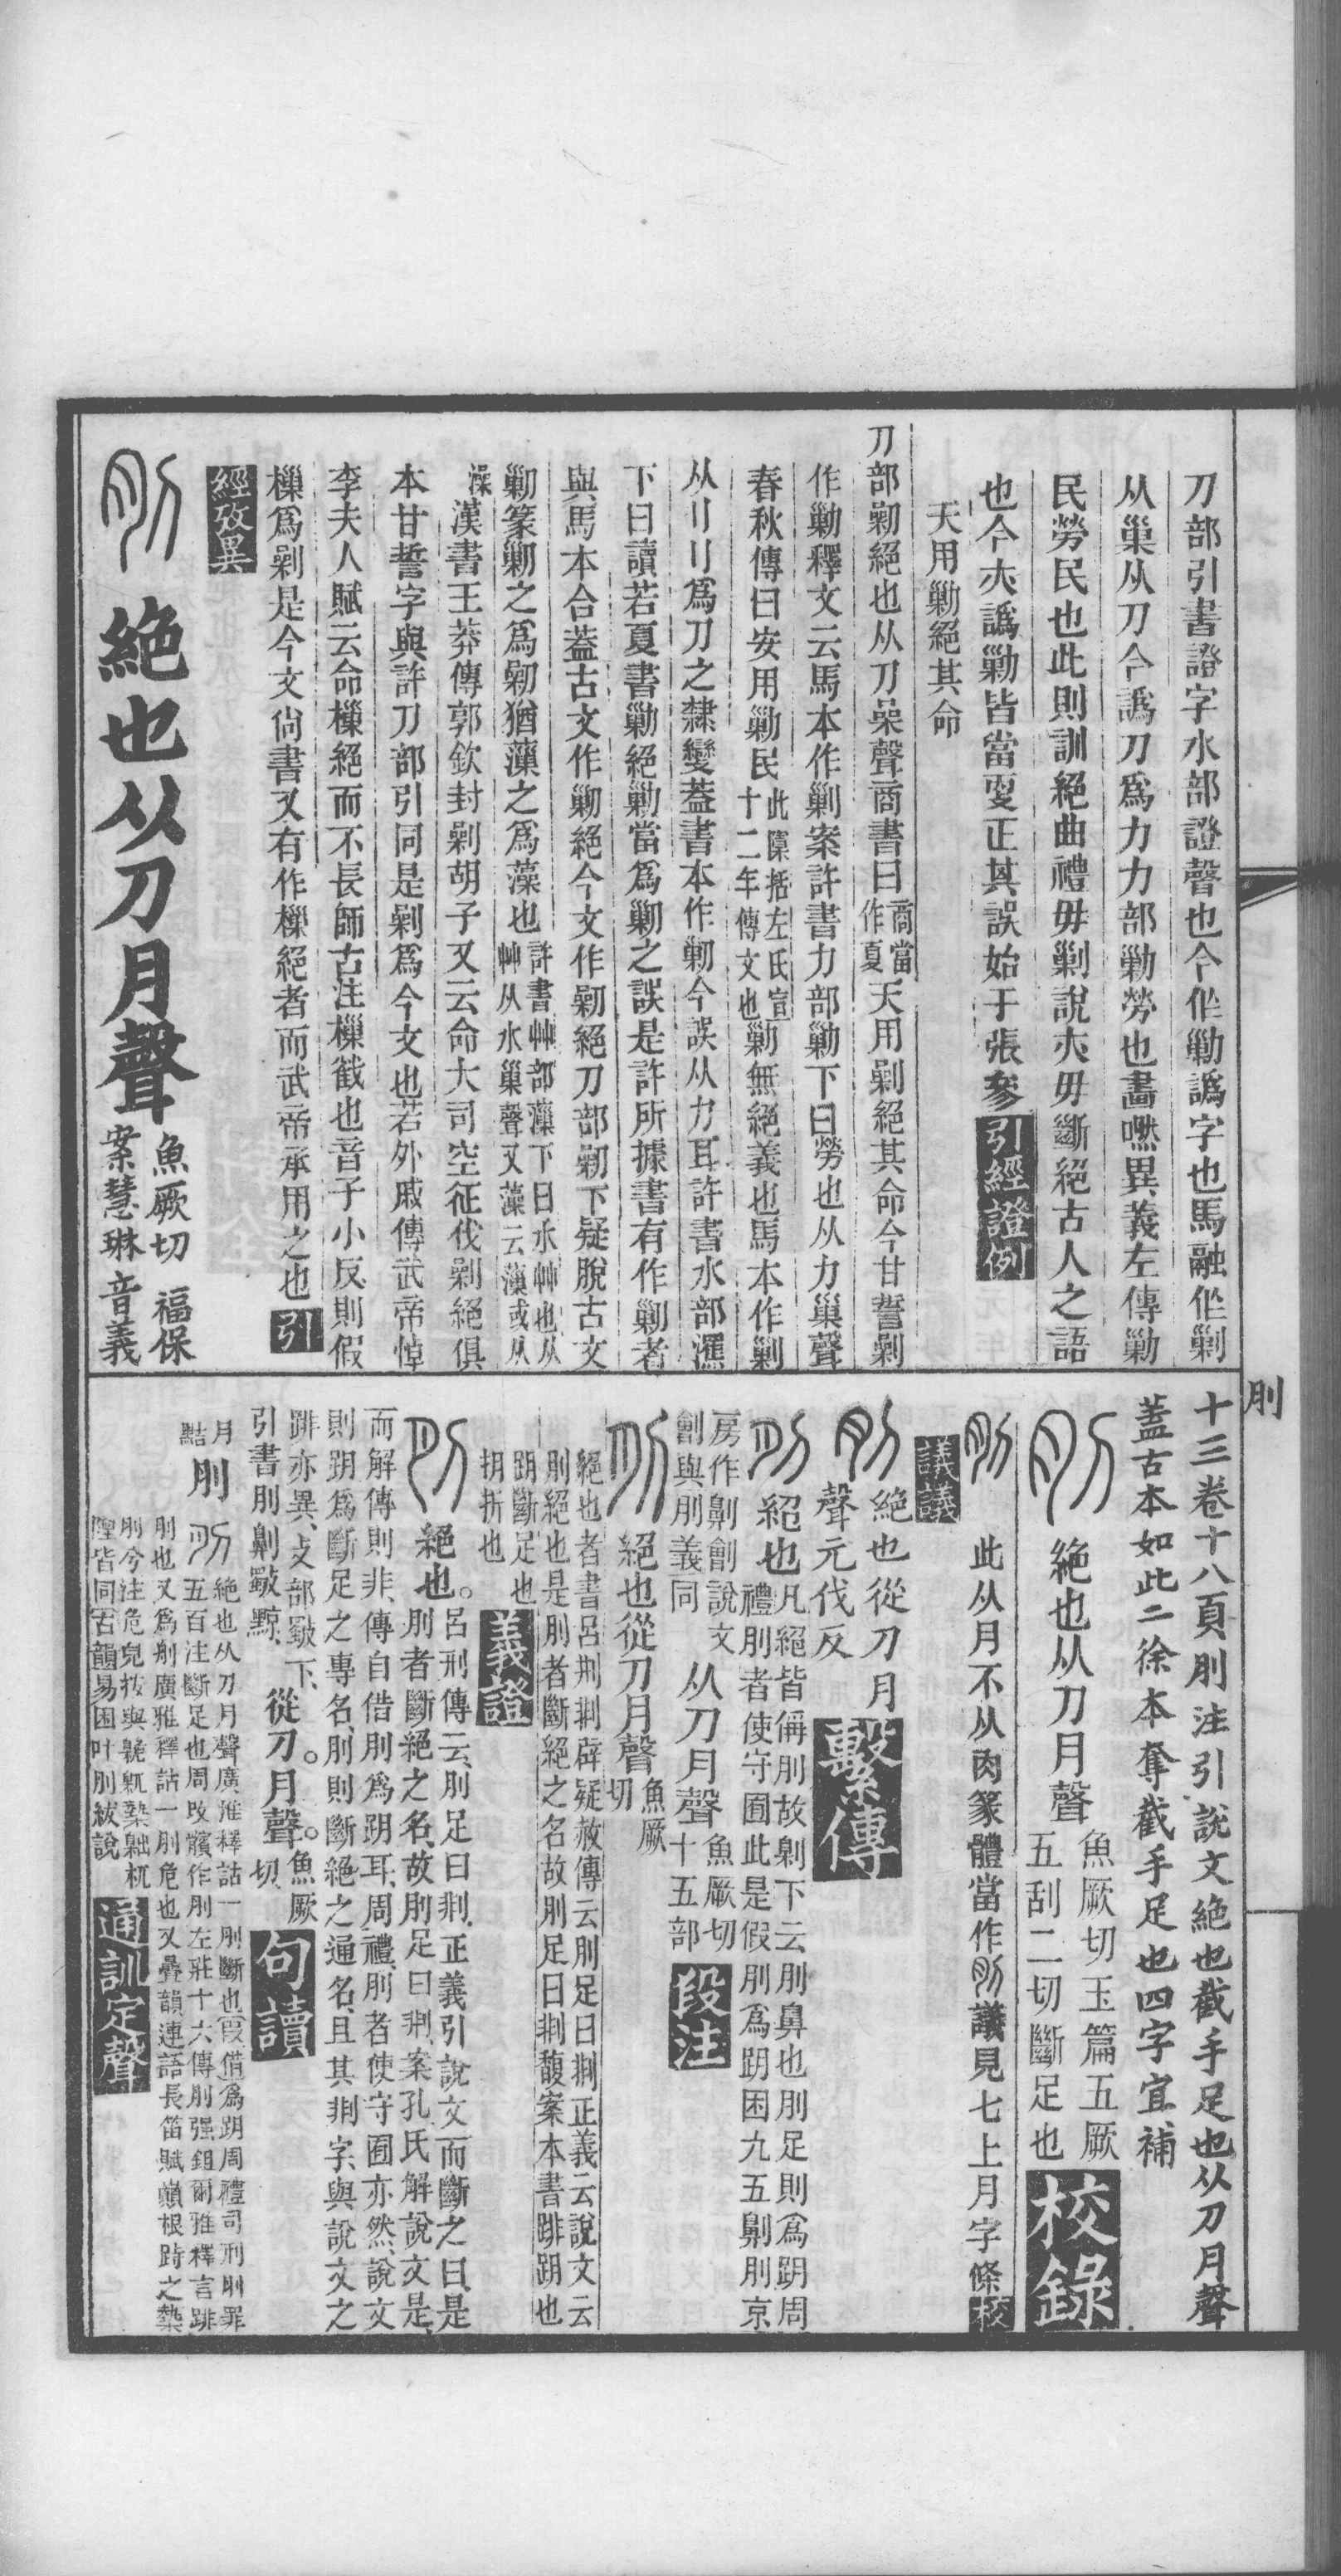 刀部引書證字水部證聲也今作勦譌字也馬融作剿
从巢从刀今譌刀爲力力部勦勞也畫嘫異義左傳勦
民勞民也此則訓絕曲禮毋剿說亦毋斷絕古人之語
也今亦譌勦皆當更正其誤始于張參引經證例
天用勦絕其命
刀部剿絕也从刀喿聲商書曰商當作夏天用剿絕其命今甘誓剿
作勦釋文云馬本作剿案許書力部勦下曰勞也从力巢聲
春秋傳曰安用勦民此檃括左氏宣十二年傳文也勦無絕義也馬本作剿
从刂刂爲刀之隸變蓋書本作剿今誤从力耳許書水部灑
下曰讀若夏書勦絕勦當爲剿之誤是許所據書有作剿者
與馬本合蓋古文作剿絕今文作剿絕刀部剿下疑脫古文
剿篆剿之爲剿猶薻之爲藻也許書艸部薻下曰水艸也从艸从水巢聲又藻云薻或从
澡漢書王莽傳郭欽封剿胡子又云命大司空征伐剿絕俱
本甘誓字與許刀部引同是剿爲今文也若外戚傳武帝悼
李夫人賦云命樔絕而不長師古注樔截也音子小反則假
樔爲剿是今文尚書又有作樔絕者而武帝承用之也引
經攷異
刖 絕也从刀月聲魚厥切 福保案慧琳音義
刖
十三卷十八頁刖注引說文絕也截手足也从刀月聲
蓋古本如此二徐本奪截手足也四字宜補
刖 絶也从刀月聲魚厥切玉篇五厥五刮二切斷足也校錄
刖 此从月不从肉篆體當作刖議見七上月字條校
議議
刖 絶也從刀月聲元伐反繫傳
刖 絕也凡絕皆偁刖故劓下云刖鼻也刖足則爲跀周禮刖者使守囿此是假刖爲跀困九五劓刖京
房作劓劊說文劊與刖義同从刀月聲魚厥切十五部段注
刖 絕也從刀月聲魚厥切
絕也者書呂刑剕辟疑赦傳云刖足曰剕正義云說文云刖絕也是刖者斷絕之名故刖足曰剕馥案本書跀跀也
跀斷足也抈折也義證
刖 絕也。呂刑傳云、刖足曰剕、正義引說文而斷之曰、是刖者斷絕之名、故刖足曰剕、案孔氏解說文是、
而解傳則非、傳自借刖爲跀耳、周禮、刖者使守囿亦然、說文則跀爲斷足之專名、刖則斷絕之通名、且其剕字、與說文之
跀亦異、攴部斀下、引書刖劓斀黥、從刀。月聲。魚厥切句讀
刖刖 絕也从刀月聲廣雅釋詁一刖斷也叚借爲跀周禮司刑刖罪五百注斷足也周改臏作刖左莊十六傳刖强鉏爾雅釋言跀
刖也又爲刖廣雅釋詁一刖危也又疊韻連語長笛賦巔根跱之槷刖今注危皃
陧皆同古韻易困叶刖紱說通訓定聲